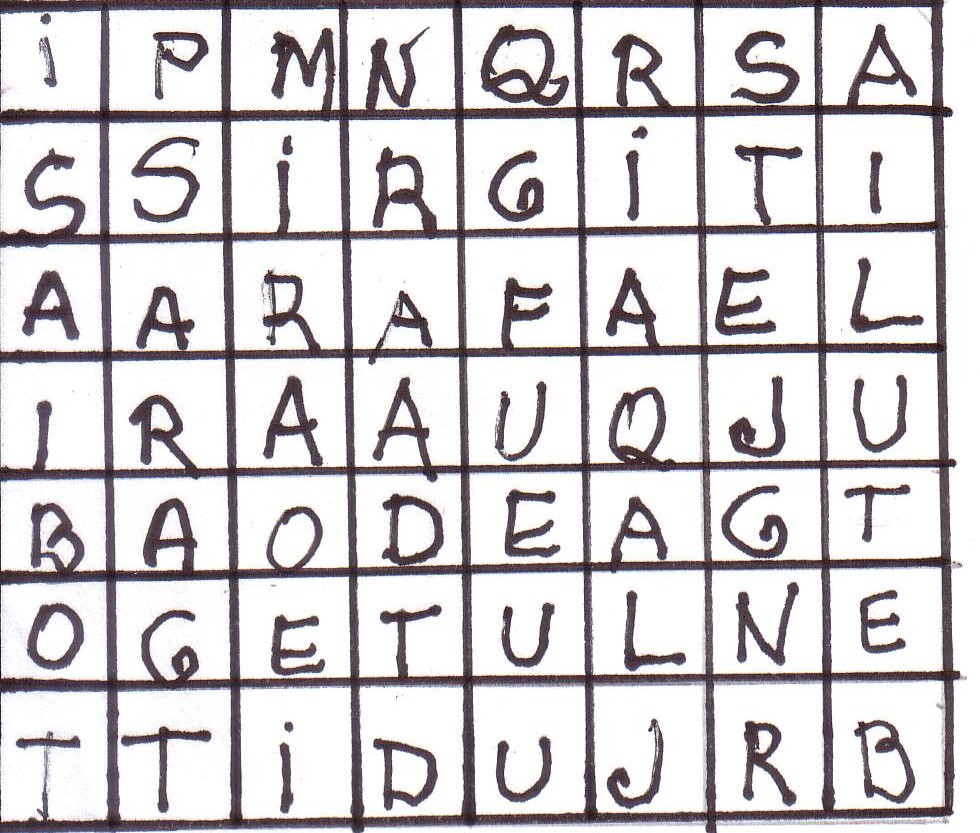 i P M N Q R S A
S S i R G i T I
A A R A F A E L
I R A A U Q J U
B A O D E A G T
O G E T U L N E
T T i D U J R B